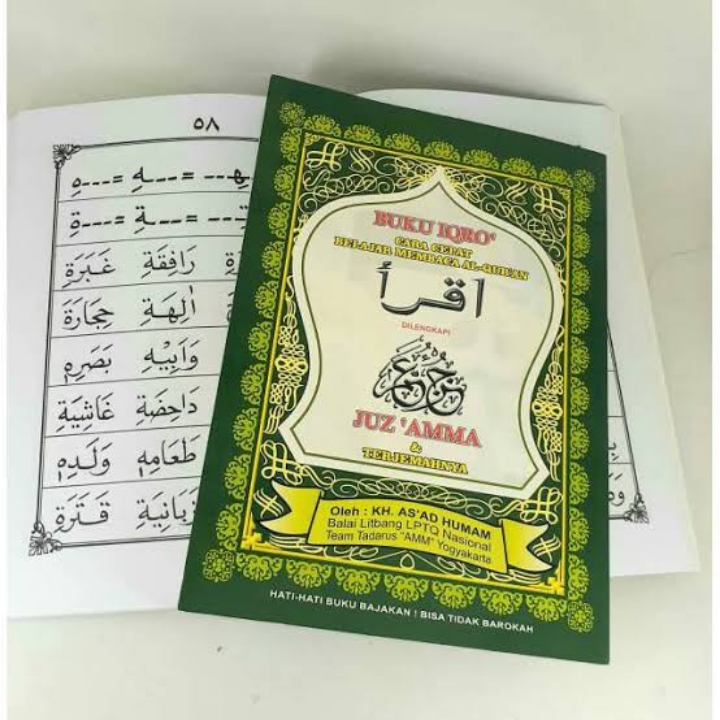 BUKU IQRO'
CARA CEPAT
BELAJAR MEMBACA AL-QUR'AN
اقرأ
DILENGKAPI
جزء عم
JUZ 'AMMA
&
TERJEMAHNYA
Oleh : KH. AS'AD HUMAM
Balai Litbang LPTQ Nasional
Team Tadarus "AMM" Yogyakarta
HATI-HATI BUKU BAJAKAN ! BISA TIDAK BAROKAH
٥٨
هِ --- = --- هِ = --- هِ
ةِ --- = --- ةِ = --- ةِ
رَافِقَةِ غَبَرَةِ
اٰلِهَةِ حِجَارَةِ
وَاَبِيْهِ بَصَرِهٖ
دَاحِضَةِ غَاشِيَةِ
طَعَامِهٖ وَلَدِهٖ
زَبَانِيَةِ قَتَرَةِ